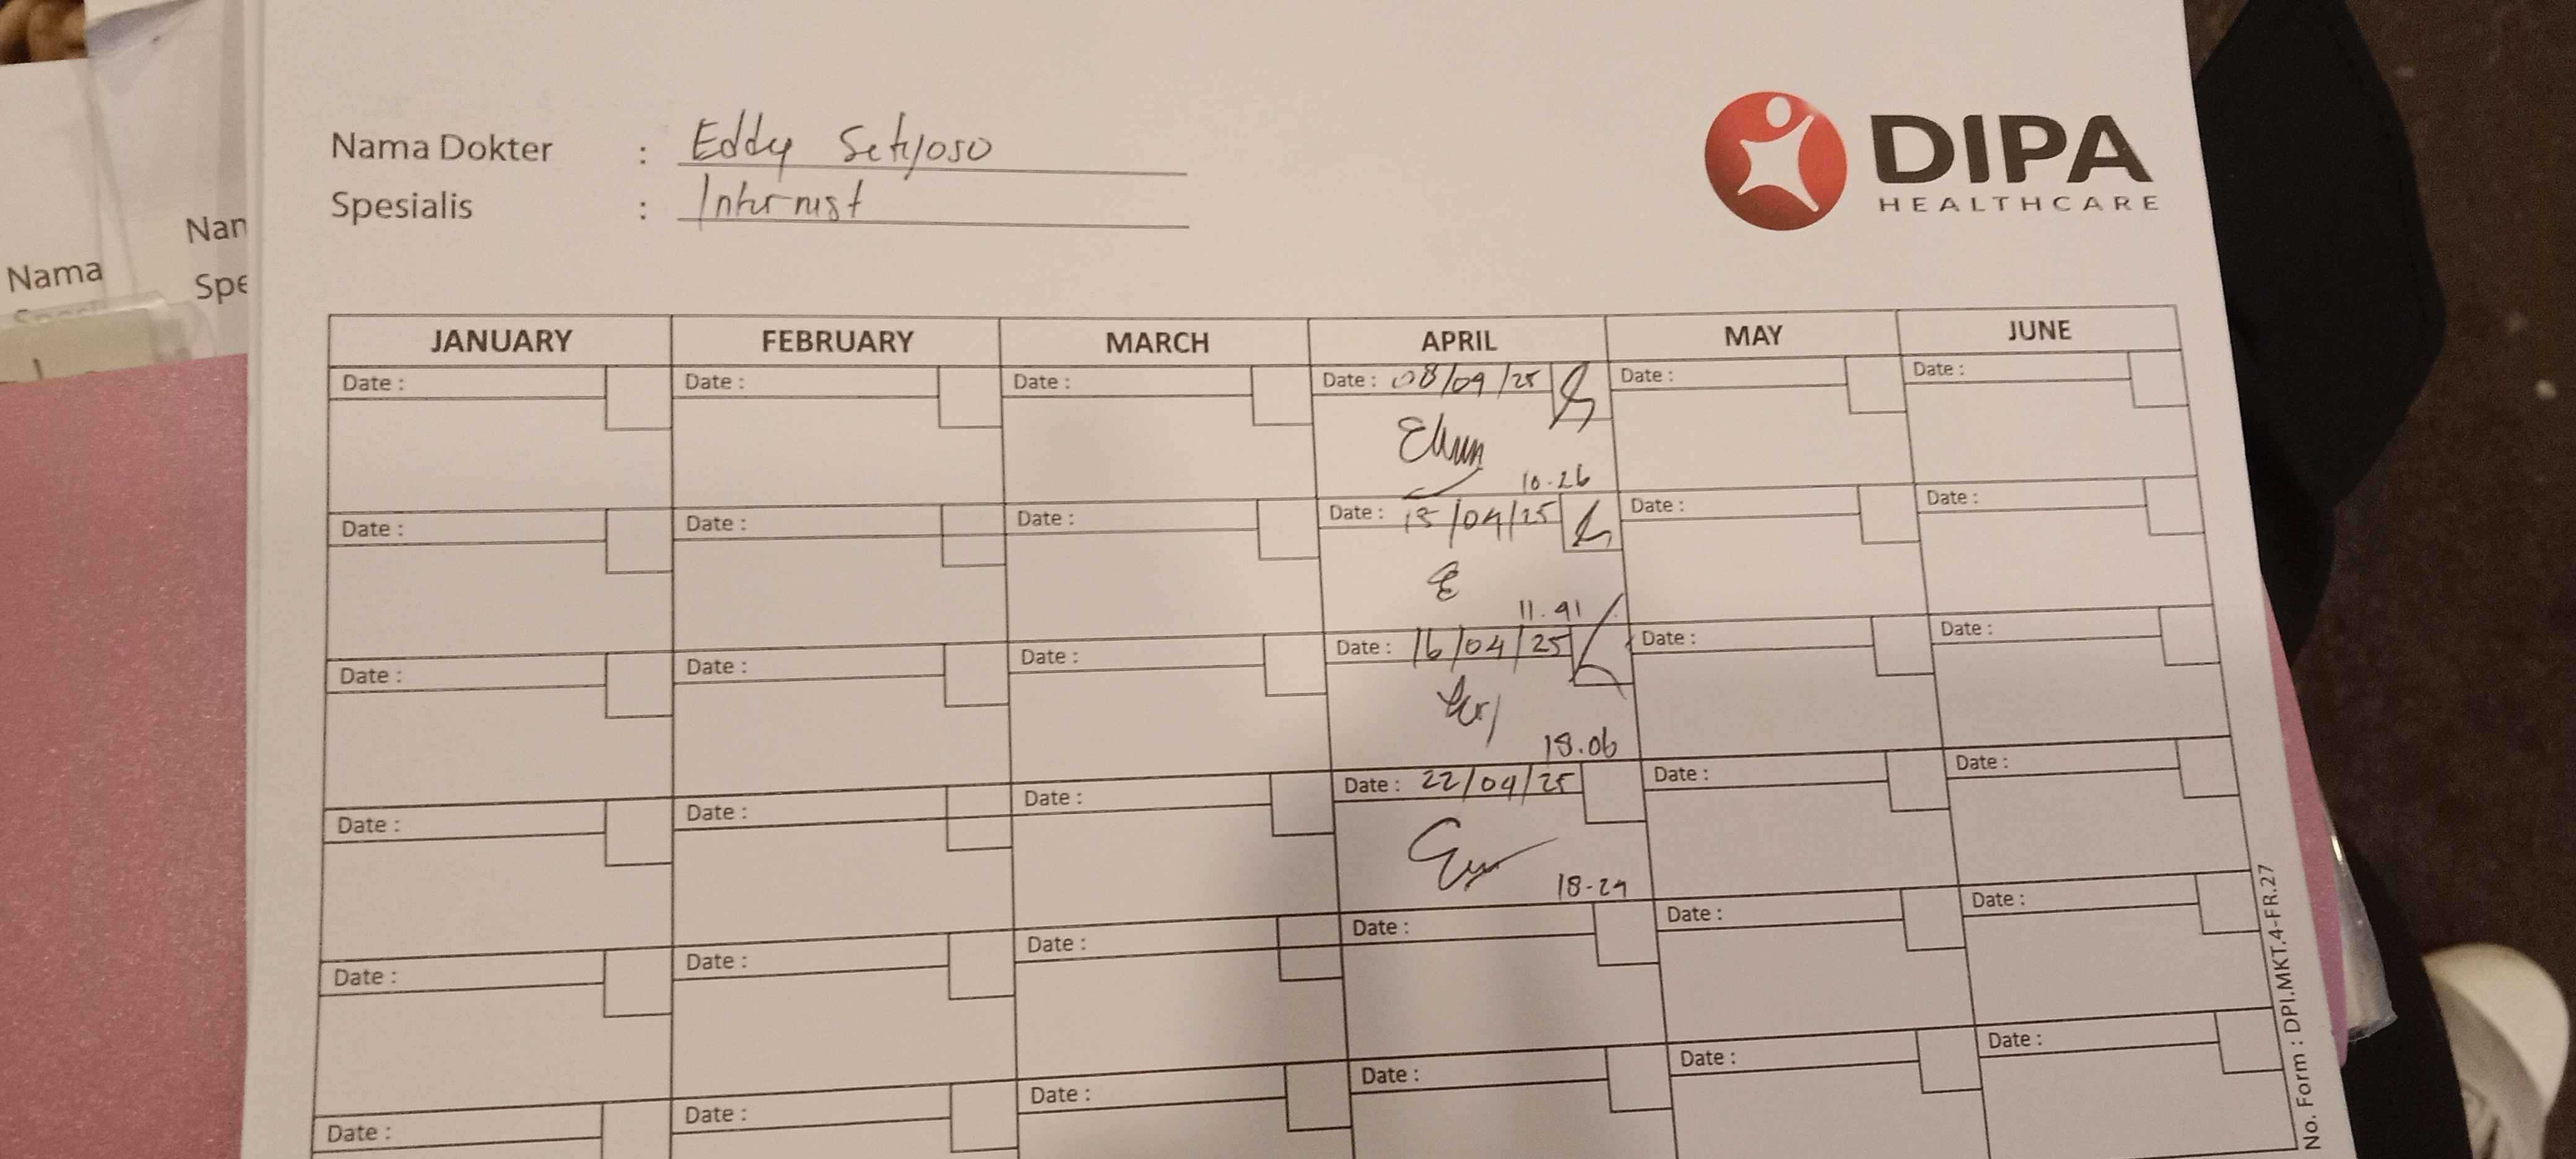 Nama Dokter : Eddy Setyoso
Spesialis : Internist
DIPA
HEALTHCARE
Nama
Nan
Spe
JANUARY FEBRUARY MARCH APRIL MAY JUNE
Date : Date : Date : Date : 08/04/25 Date : Date :
10.26
Date : Date : Date : Date : 15/04/25 Date : Date :
11.41
Date : Date : Date : Date : 16/04/25 Date : Date :
18.06
Date : Date : Date : Date : 22/04/25 Date : Date :
18-24
Date : Date : Date : Date : Date : Date :
Date : Date : Date : Date : Date : Date :
No. Form : DPI.MKT.4-FR.27